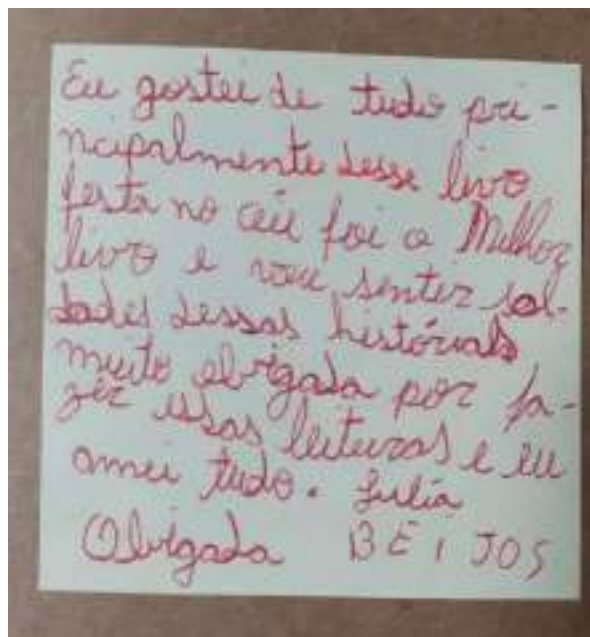 Eu gostei de tudo pri-
ncipalmente desse livro
festa no céu foi o Milhor
livro e vou sentir sal-
dades dessas histórials
muito obrigada por fa-
zer essas leituras e eu
amei tudo. Julia
Obrigada BEIJOS